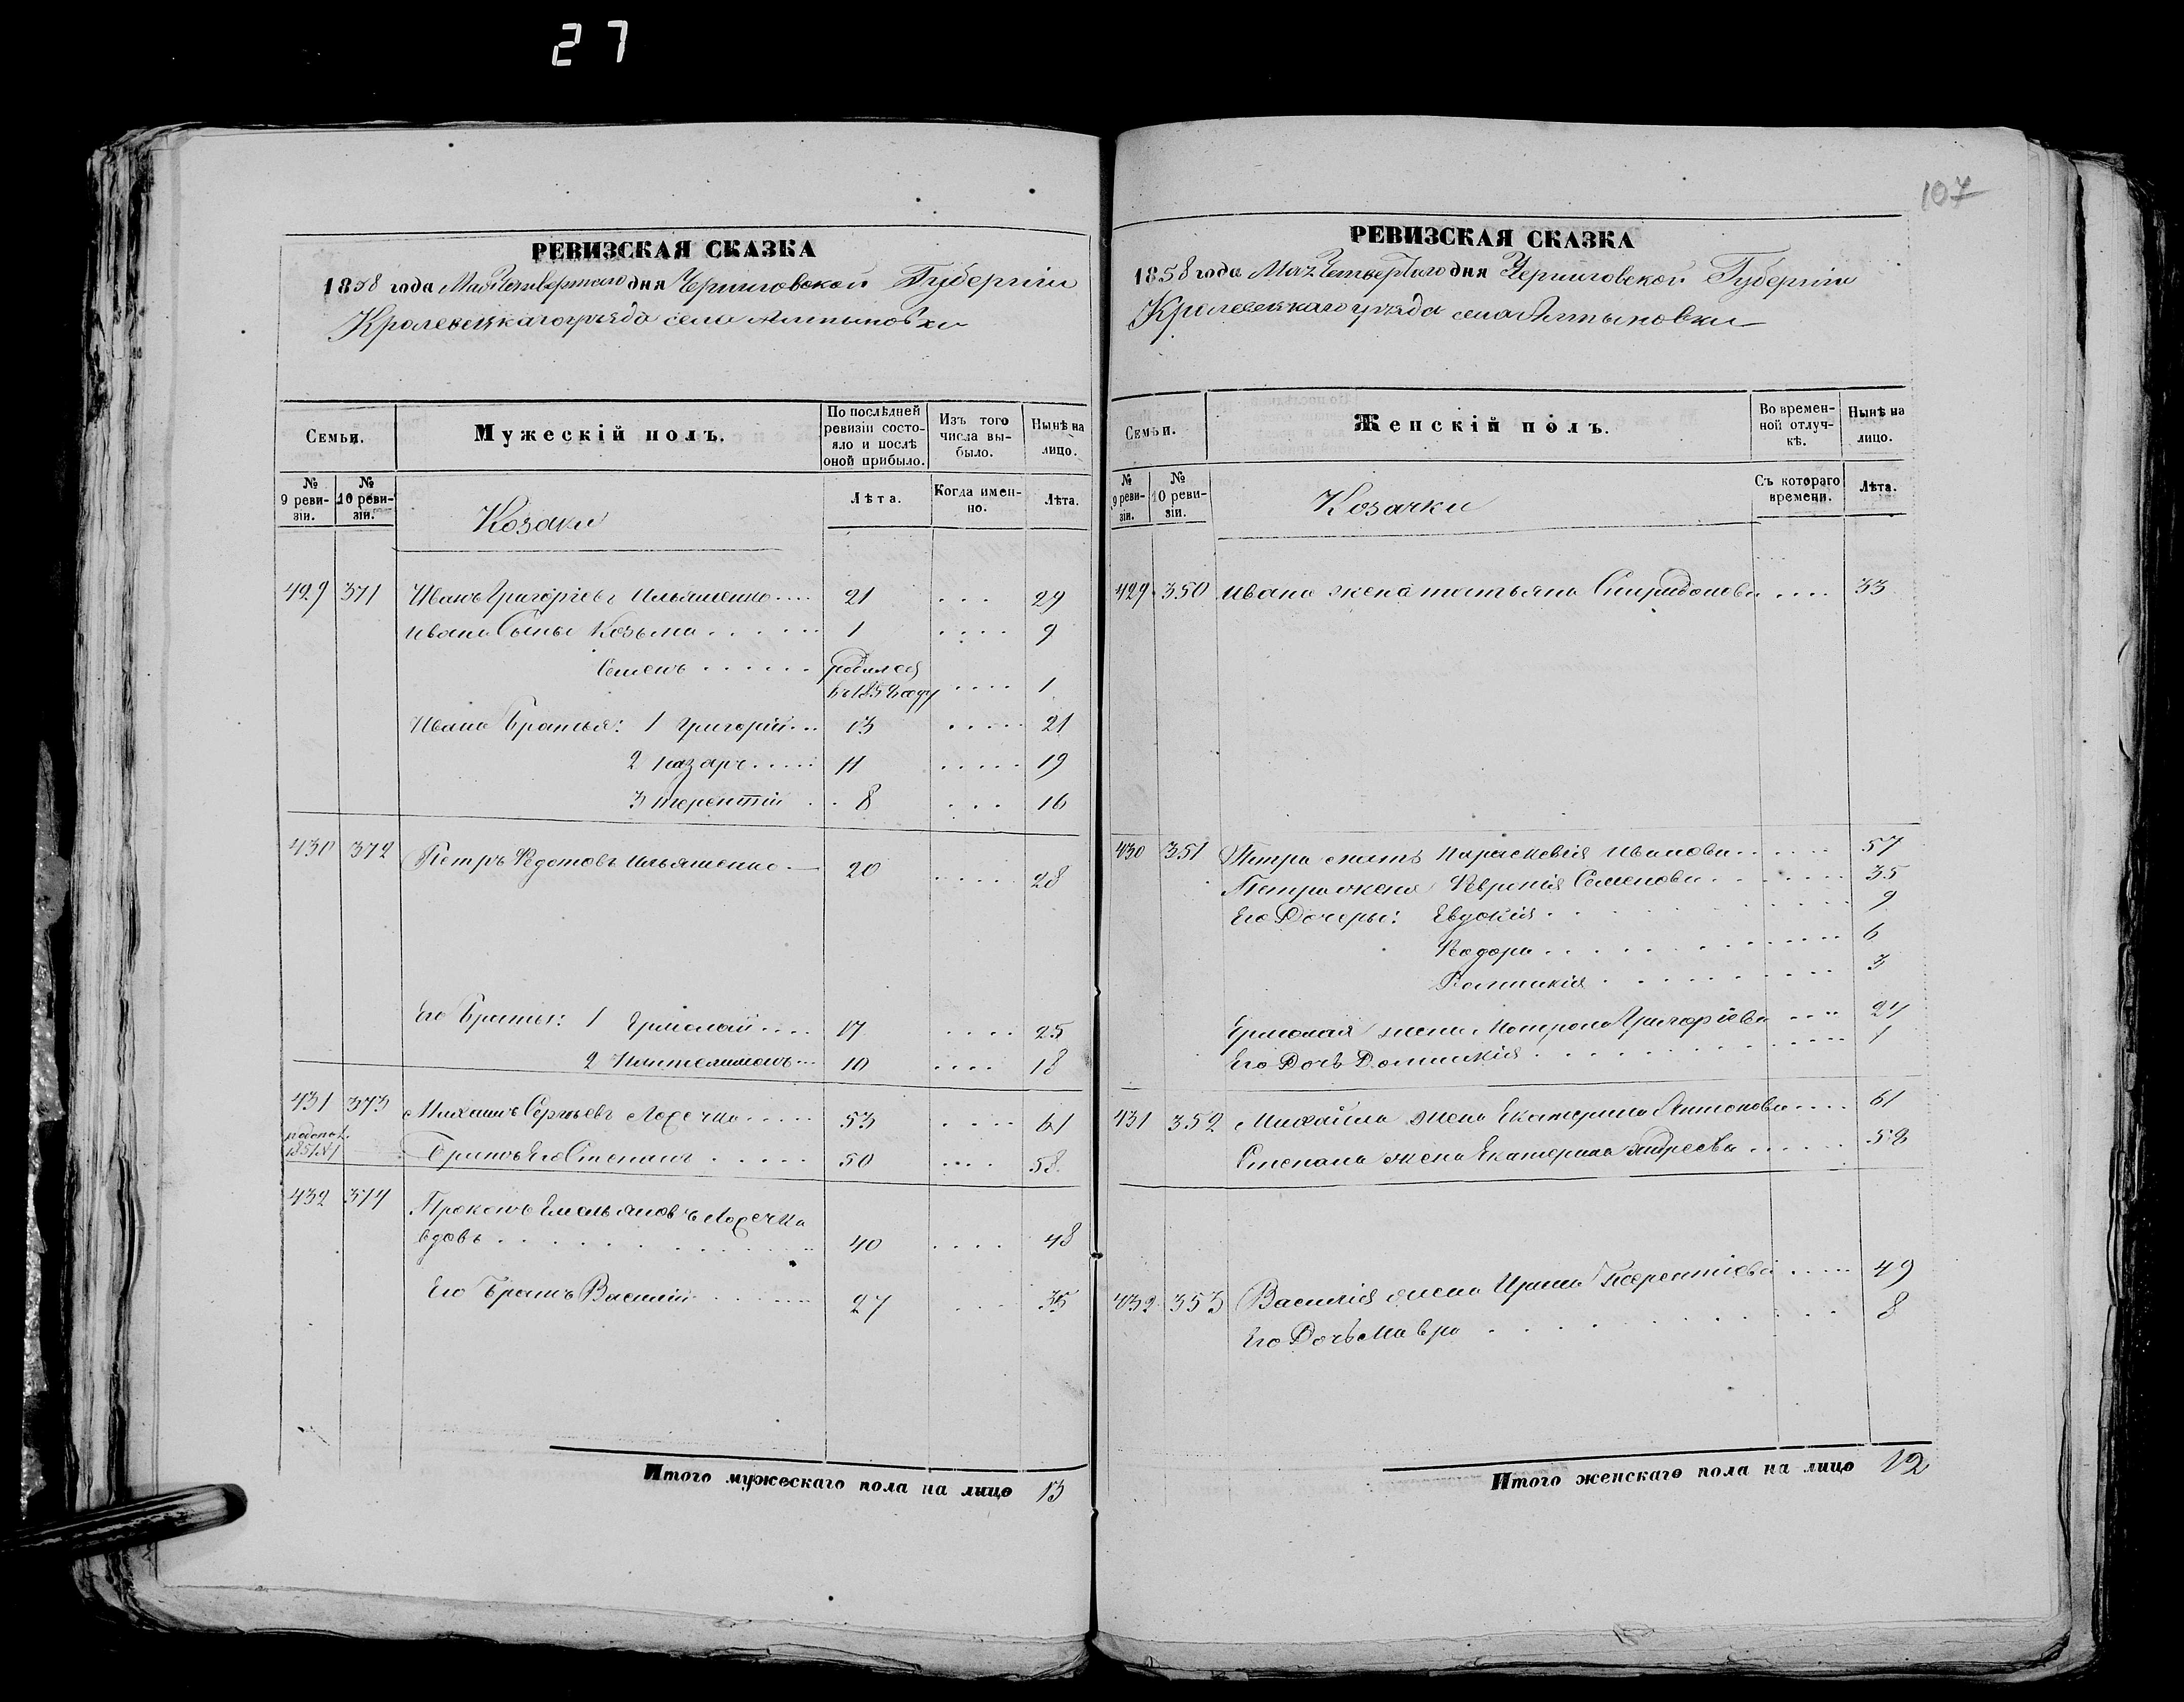 27
107
РЕВИЗСКАЯ СКАЗКА
1858 года Мая Четвертого дня Черниговской Губерніи
Кролевецкаго уезда села Алтыновки
Семьи.
Мужескій полъ.
По послѣдней ревизіи состояло и послѣ оной прибыло.
Изъ того числа выбыло.
Нынѣ на лицо.
№ 9 ревизіи.
№ 10 ревизіи.
Козаки
Лѣта.
Когда именно.
Лѣта.
429 371 Иванъ Григоріевъ Ильяшенко .... 21 ... 29
Ивана Сыны Козьма ...... 1 .... 9
Семенъ ...... родился
в 1857 году .... 1
Ивана Братья: 1 Григорій... 13 ..... 21
2 Назаръ..... 11 ..... 19
3 Терентій .. 8 ... 16
430 372 Петръ Федотовъ Ильяшенко — 20 .... 28
Его Браты: 1 Ермолай.... 17 .... 25
2 Пантелимонъ... 10 .... 18
431 373 Михаилъ Сергѣевъ ..... 53 .... 61
1851 №
Братъ Его Степанъ ..... 50 .... 58
432 374 Прокопъ Емельяновъ
вдовъ ........ 40 .... 48
Его Братъ Василій ..... 27 ... 35
Итого мужескаго пола на лицо 13
РЕВИЗСКАЯ СКАЗКА
1858 года Мая Четвертого дня Черниговской Губерніи
Кролевецкаго уезда села Алтыновки
Семьи.
Женскій полъ.
Во временной отлучкѣ.
Нынѣ на лицо.
№ 9 ревизіи.
№ 10 ревизіи.
Козачки
Съ котораго времени.
Лѣта.
429 350 Ивана жена Татьяна Спиридонова .... 33
430 351 Петра мать Параскевія Иванова ...... 57
Петра жена Феврсія Семенова ....... 35
Его Дочеры: Евдокія ........ 9
Федора ........ 6
Домникія ........ 3
Ермолая жена Матрона Григоріева .... 24
Его Дочь Домникія ........ 1
431 352 Михайла жена Екатерина Антонова .... 61
Степана жена Екатерина Андреева ...... 58
432 353 Василія жена Ирина Терентіева ..... 49
Его Дочь Мавра ........ 8
Итого женскаго пола на лицо 12